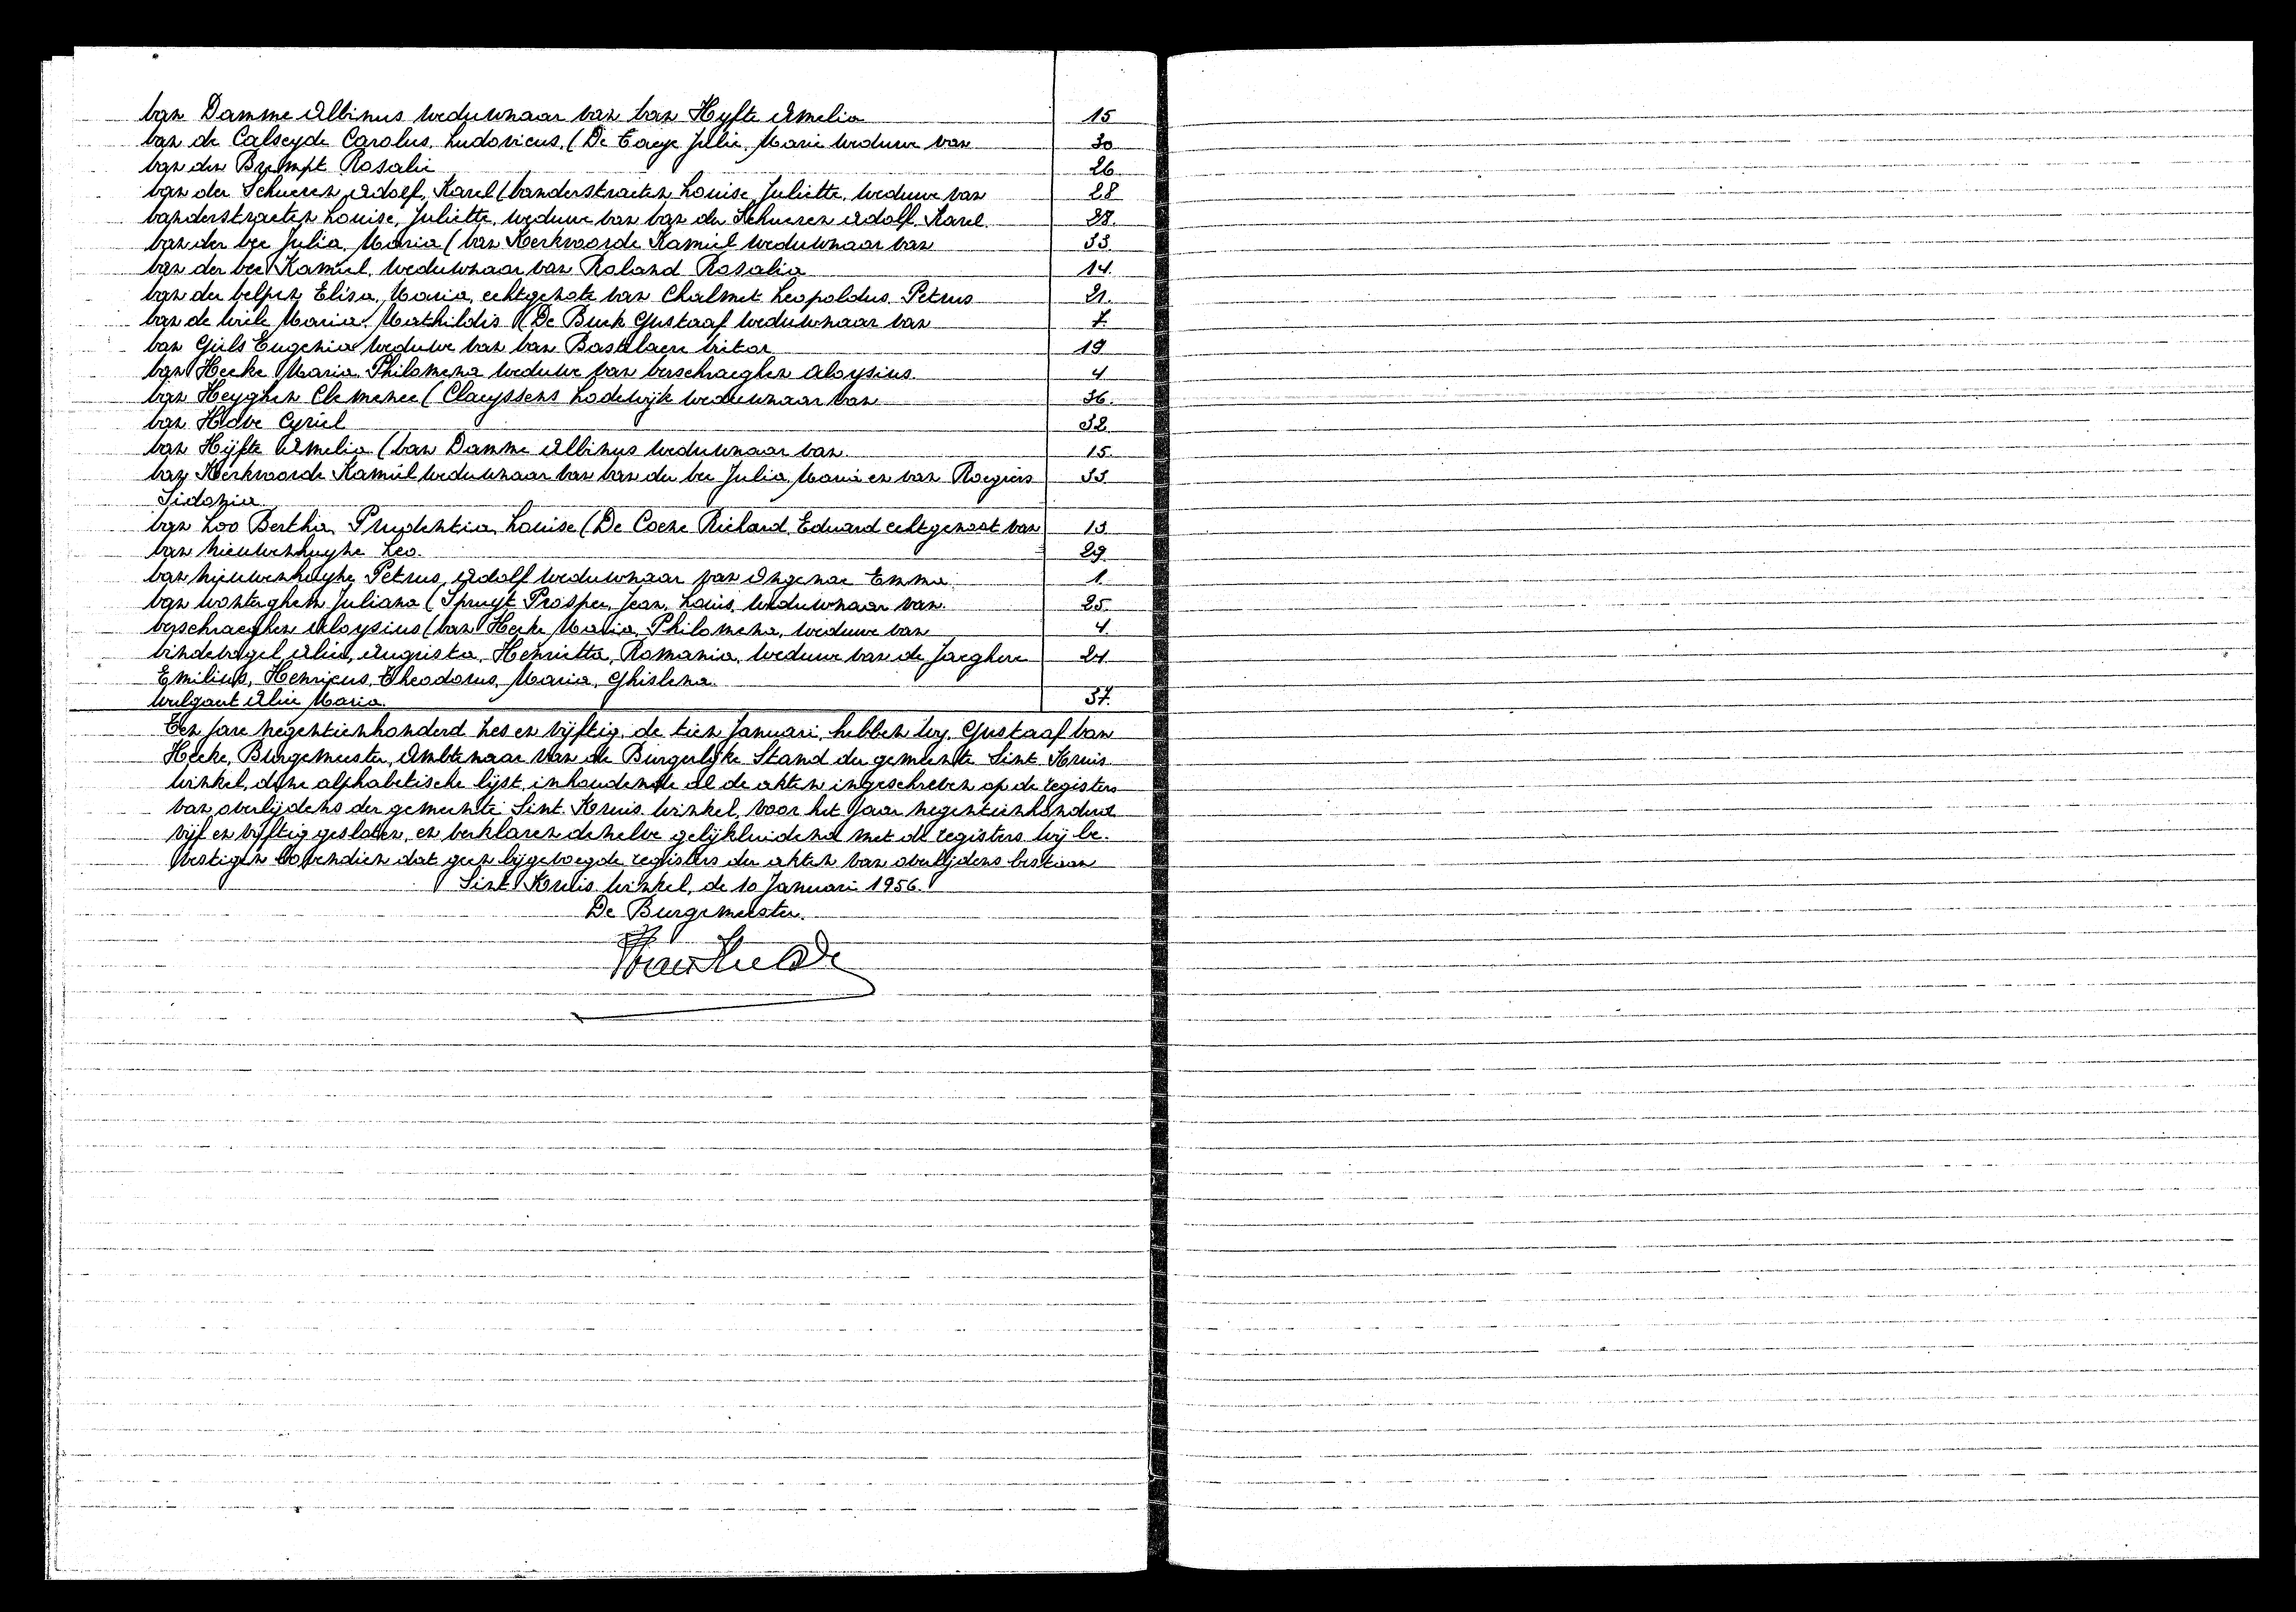 Van Damme Albinus weduwnaar van Van Hyfte Amelia 15
Van de Calseyde Carolus, Ludovicus, (De Taeye Julie, Marie weduwe van 30
Van den Brempt Rosalie 26
Van der Schueren Adolf, Karel (Vanderstraeten Louise, Juliette, weduwe van 28
Vanderstraeten Louise, Juliette, weduwe van Van der Schueren Adolf, Karel. 28.
Van der Vee Julia, Maria (Van Kerkvoorde Kamiel weduwnaar van 33.
Van der Vee Kamiel, weduwnaar van Roland Rosalia 14.
Van der Velpen Elisa, Maria, echtgenote van Chalmet Leopoldus, Petrus 21.
Van de Wiele Maria, Mathildis (De Buck Gustaaf weduwnaar van 7.
Van Gils Eugenia weduwe van Van Bastelaere Victor 19
Van Hecke Maria, Philomena weduwe van Verschraeghen Aloysius. 4
Van Heyghen Clemence (Claeyssens Lodewijk weduwnaar van 36.
Van Hove Cyriel 32.
Van Hijfte Amelia (Van Damme Albinus weduwnaar van 15.
Van Kerkvoorde Kamiel weduwnaar van Van der Vee Julia, Maria en van Roegiers 33.
Sidonia
Van Loo Bertha, Prudentia, Louise (De Coene Richard, Eduard echtgenoot van 13.
Van Nieuwenhuyse Leo. 29.
Van Nieuwenhuyse Petrus, Adolf weduwnaar van Ingenae Emma 1.
Van Wonterghem Juliana (Spruyt Prosper, Jean, Louis, weduwnaar van. 25.
Verschraeghen Aloysius (Van Hecke Maria, Philomena, weduwe van 4.
Vindevogel Alice, Augusta, Henrietta, Romania, weduwe van de Jaeghere 24.
Emilius, Henricus, Theodorus, Maria, Ghislena.
Wulgaert Alice Maria. 37.
Ten jare negentienhonderd zes en vijftig, de tien Januari, hebben wij, Gustaaf Van
Hecke, Burgemeester, Ambtenaar van de Burgerlijke Stand der gemeente Sint Kruis
Winkel, deze alphabetische lijst, inhoudende al de akten ingeschreven op de registers
van overlijdens der gemeente Sint Kruis Winkel, voor het jaar negentienhonderd
vijf en vijftig gesloten, en verklaren dezelve gelijkluidend met de registers. Wij be-
vestigen bovendien dat geen bijgevoegde registers der akten van overlijdens bestaan
Sint Kruis Winkel, de 10 Januari 1956.
De Burgemeester.